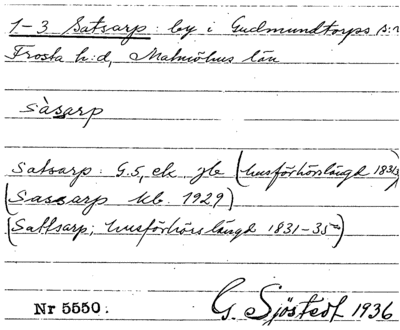 1-3 Satsarp: by i Gudmundtorps s:n
Frosta h:d, Malmöhus län
sàsarp
Satsarp: G.5, ek. jb (husförhörslängd 1831)
(Sassarp kb. 1929)
(Sattsarp; husförhörslängd 1831-35)
Nr 5550: G. Sjöstedt 1936